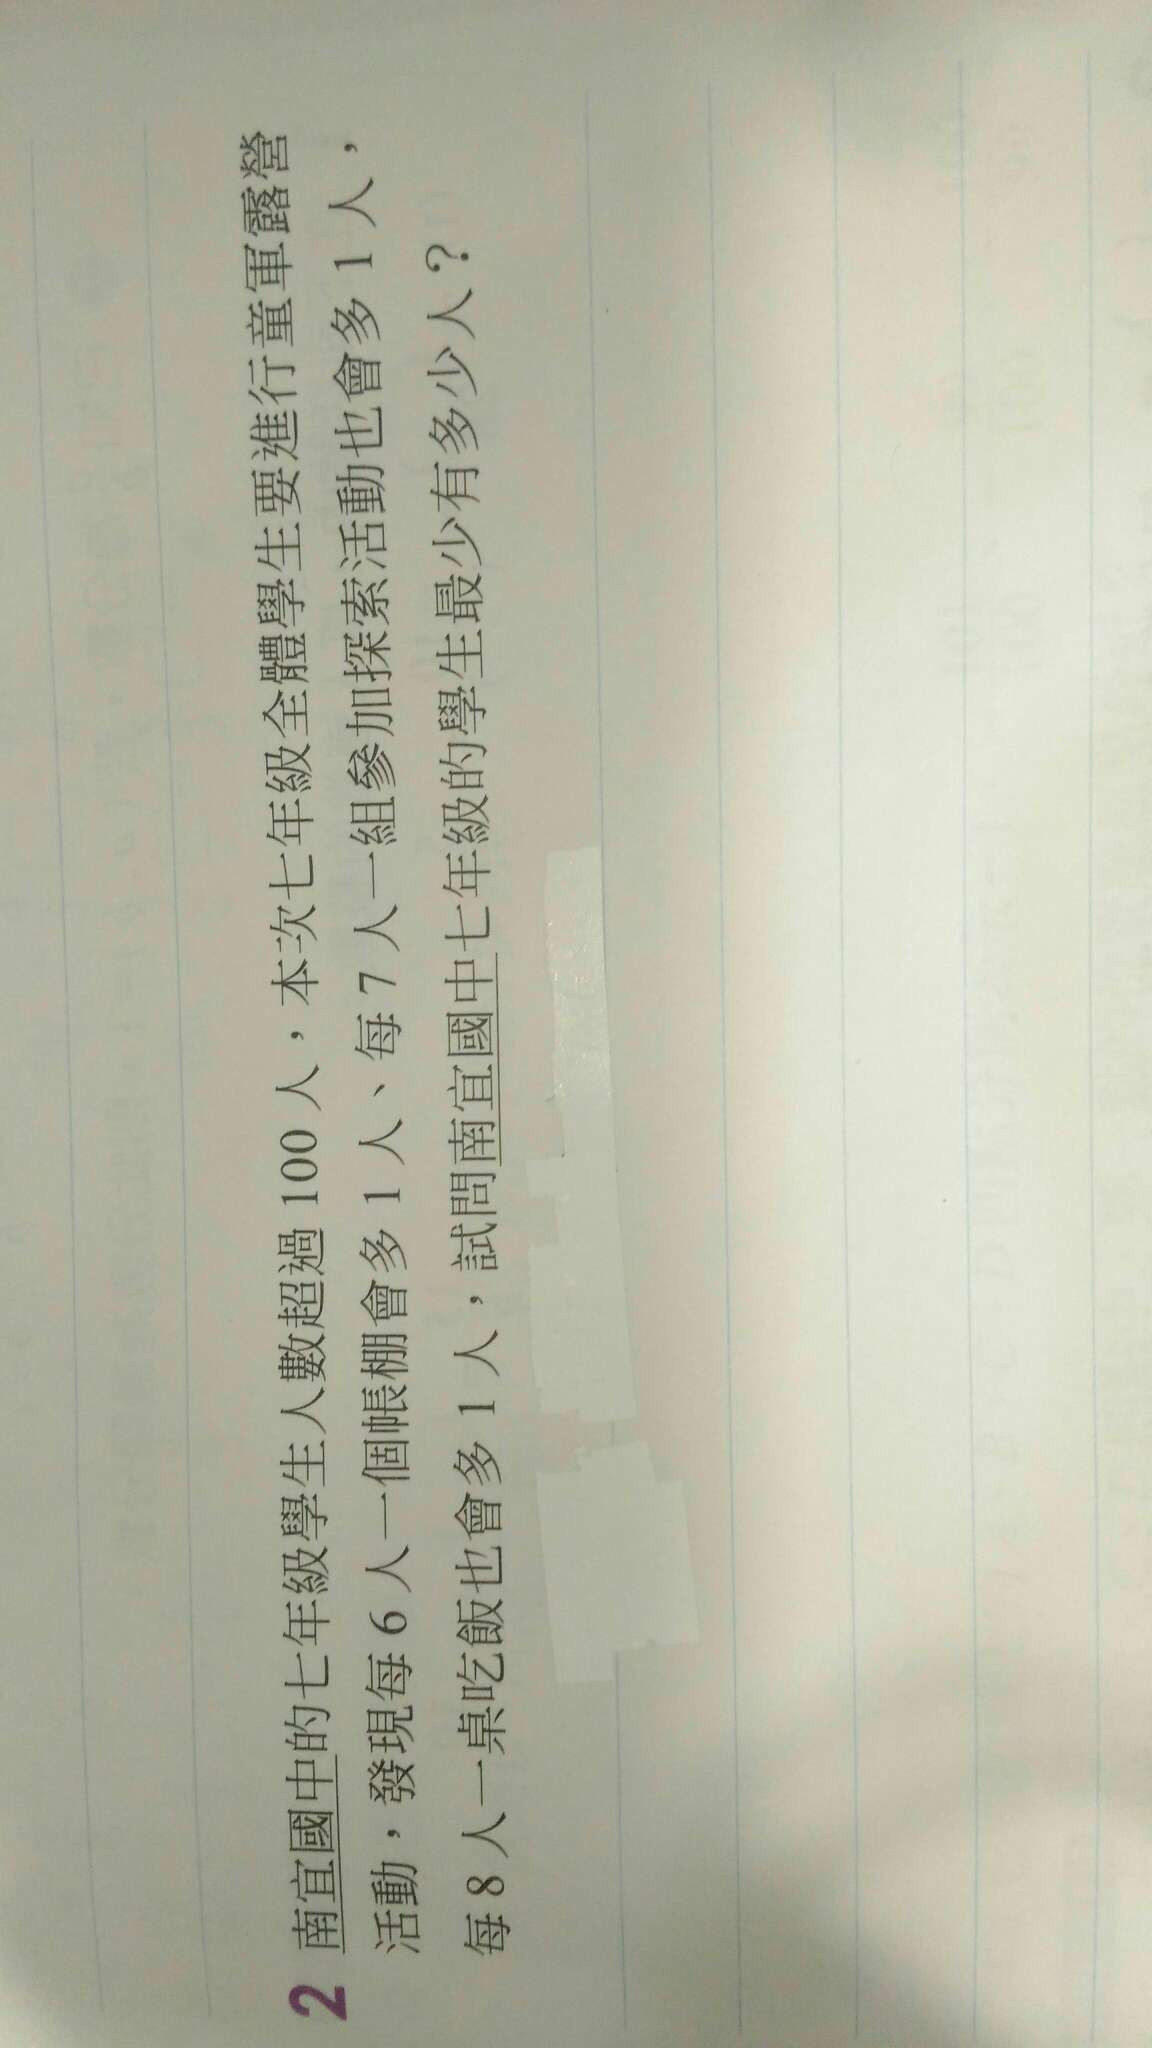 2 南宜國中的七年級學生人數超過 100 人，本次七年級全體學生要進行童軍露營
活動，發現每 6 人一個帳棚會多 1 人、每 7 人一組參加探索活動也會多 1 人，
每 8 人一桌吃飯也會多 1 人，試問南宜國中七年級的學生最少有多少人？